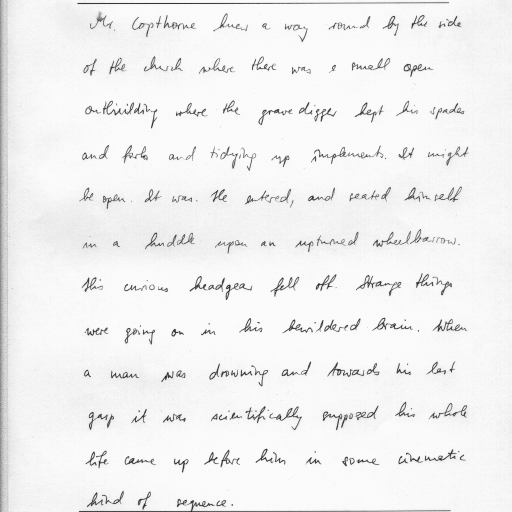 Mr. Copthorne knew a way round by the side
of the church where there was a small open
outbuilding where the gravedigger kept his spades
and forks and tidying up implements. It might
be open. It was. He entered, and seated himself
in a huddle upon an upturned wheelbarrow.
His curious headgear fell off. Strange things
were going on in his bewildered brain. When
a man was drowning and towards his last
gasp it was scientifically supposed his whole
life came up before him in some cinematic
kind of sequence.